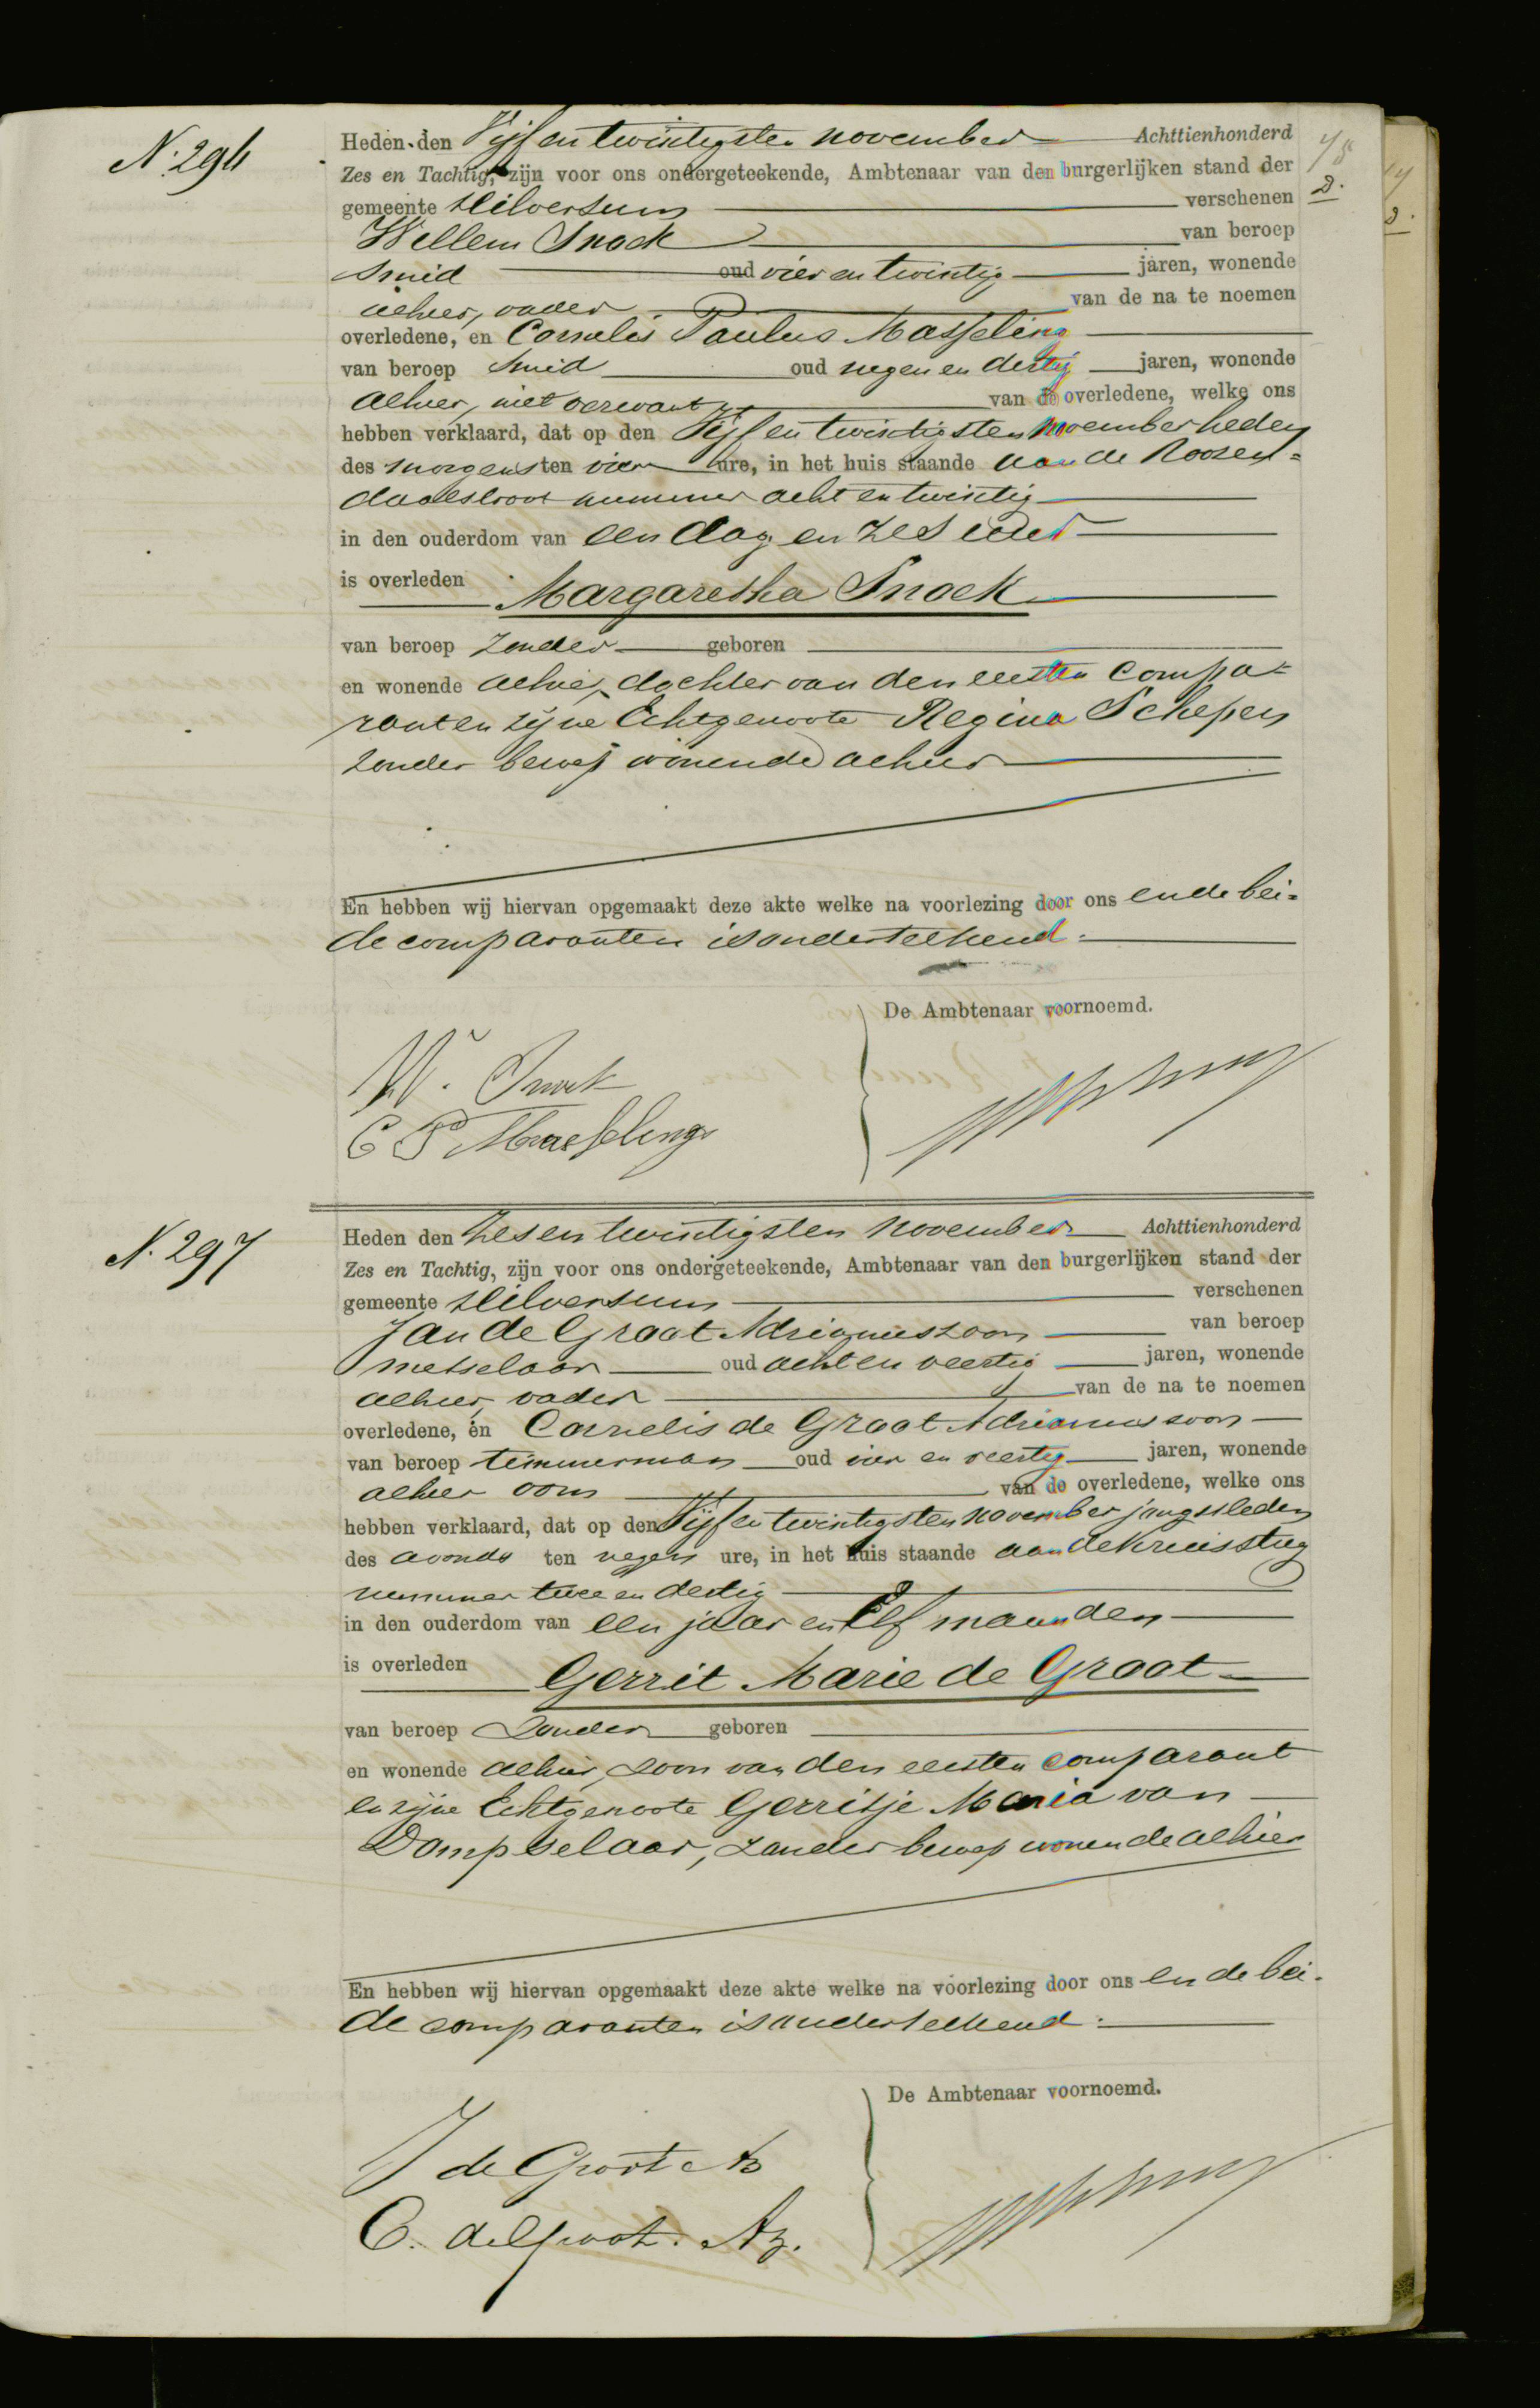 N. 296
Heden den Vijf en twintigsten november Achttienhonderd
Zes en Tachtig, zijn voor ons ondergeteekende, Ambtenaar van den burgerlijken stand der
gemeente Hilversum verschenen
Willem Snoek van beroep
Smid oud vier en twintig jaren, wonende
alhier, vader van de na te noemen
overledene, en Cornelis Paulus Masseling
van beroep Smid oud negen en dertig jaren, wonende
alhier, niet verwant van de overledene, welke ons
hebben verklaard, dat op den Vijf en twintigsten november heden
des morgens ten vier ure, in het huis staande aan de Roosen-
daalstraat nummer acht en twintig
in den ouderdom van een dag en zes uur
is overleden Margaretha Snoek
van beroep zonder geboren
en wonende alhier, dochter van den eersten compa-
rant en zijne Echtgenoote Regina Schepers
zonder beroep wonende alhier
En hebben wij hiervan opgemaakt deze akte welke na voorlezing door ons en de bei-
de comparanten is onderteekend.
De Ambtenaar voornoemd.
W. Snoek
C P Masseling
N. 297
Heden den Zes en twintigsten november Achttienhonderd
Zes en Tachtig, zijn voor ons ondergeteekende, Ambtenaar van den burgerlijken stand der
gemeente Hilversum verschenen
Jan de Groot Adrianuszoon van beroep
metselaar oud acht en veertig jaren, wonende
alhier, vader van de na te noemen
overledene, en Cornelis de Groot Adrianuszoon
van beroep timmerman oud vier en veertig jaren, wonende
alhier oom van de overledene, welke ons
hebben verklaard, dat op den Vijf en twintigsten november jongstleden
des avonds ten negen ure, in het huis staande aan de Kruissteg
nummer twee en dertig
in den ouderdom van een jaar en Elf maanden
is overleden Gerrit Marie de Groot
van beroep Zonder geboren
en wonende alhier, zoon van den eersten comparant
en zijne Echtgenoote Gerritje Maria van
Dompselaar, zonder beroep wonende alhier
En hebben wij hiervan opgemaakt deze akte welke na voorlezing door ons en de bei-
de comparanten is onderteekend.
De Ambtenaar voornoemd.
J de Groot Az
C. de Groot. Az.